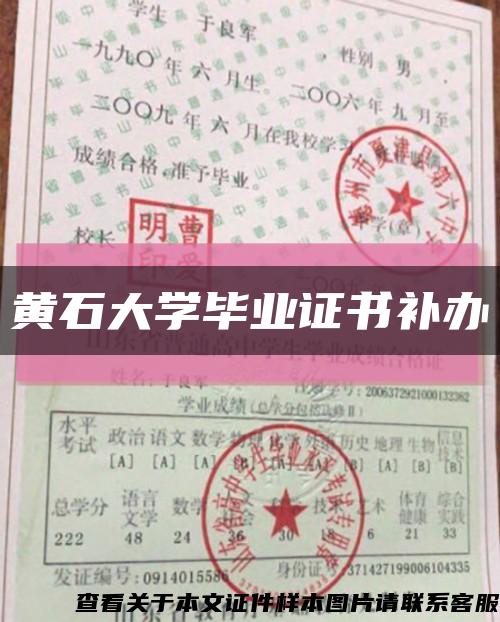 学生 于良军 ，性别 男 ，
一九九〇 年 六 月生。二〇〇六 年 九 月至
二〇〇九 年 六 月在我校学习
成绩合格,准予毕业。
校长
曹爱
明印
德州市夏津县第六中学
学(章)
二〇〇
黄石大学毕业证书补办
山东省普通高中学生学业成绩合格证
姓名:于良军
学号: 2006372921000132362
学业成绩
水平考试
政治 语文 数学 物理 化学 外语 历史 地理 生物 信息技术
总学分
语言文学
数学
技术
艺术
体育健康
综合实践
222 48 24 36 30 18 6 21 33
山东省高中学生学业水平考试专用章
发证编号: 0914015586
身份证号:
查看关于本文证件样本图片请联系客服